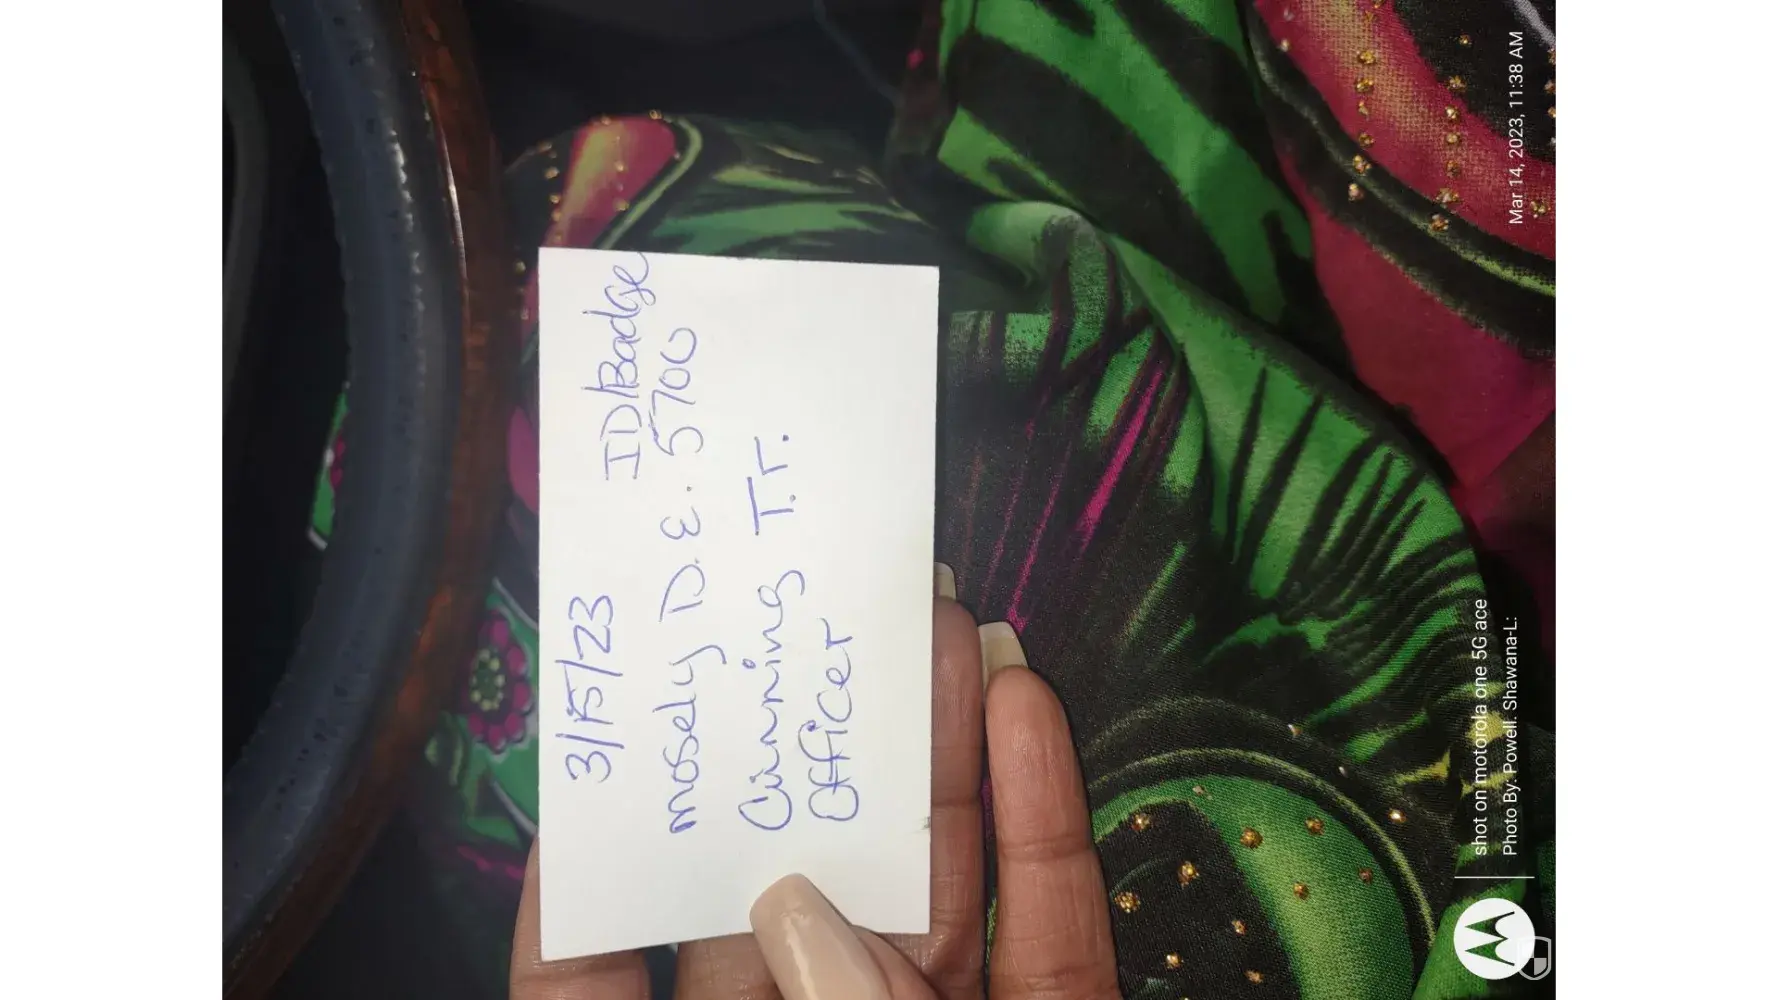 3/15/23
ID/Badge
mosely D.E. 5700
Cunning T.r.
Officer
shot on motorola one 5G ace
Photo By: Powell. Shawana-L:
Mar 14, 2023, 11:38 AM